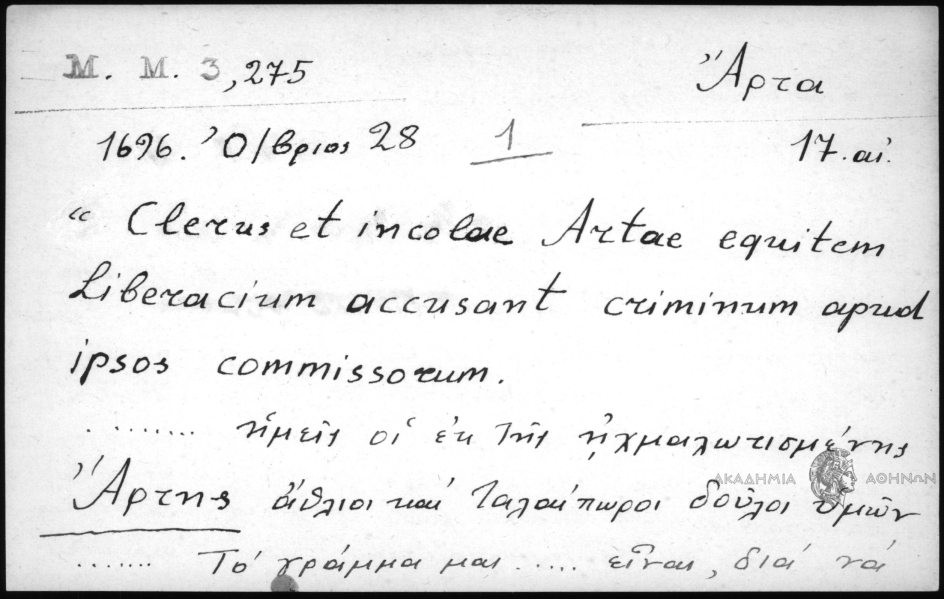 Μ. Μ. 3,275 Ἄρτα
1696. Ὀ/βριος 28 1 17. αἰ.
“ Clerus et incolae Artae equitem
Liberacium accusant criminum apud
ipsos commissorum.
........ ἡμεῖς οἱ ἐκ τῆς ᾐχμαλωτισμένης
Ἄρτης ἄθλιοι καὶ ταλαίπωροι δοῦλοι ὑμῶν
ΑΚΑΔΗΜΙΑ ΑΘΗΝΩΝ
....... Τό γράμμα μας ..... εἶναι, διά νά